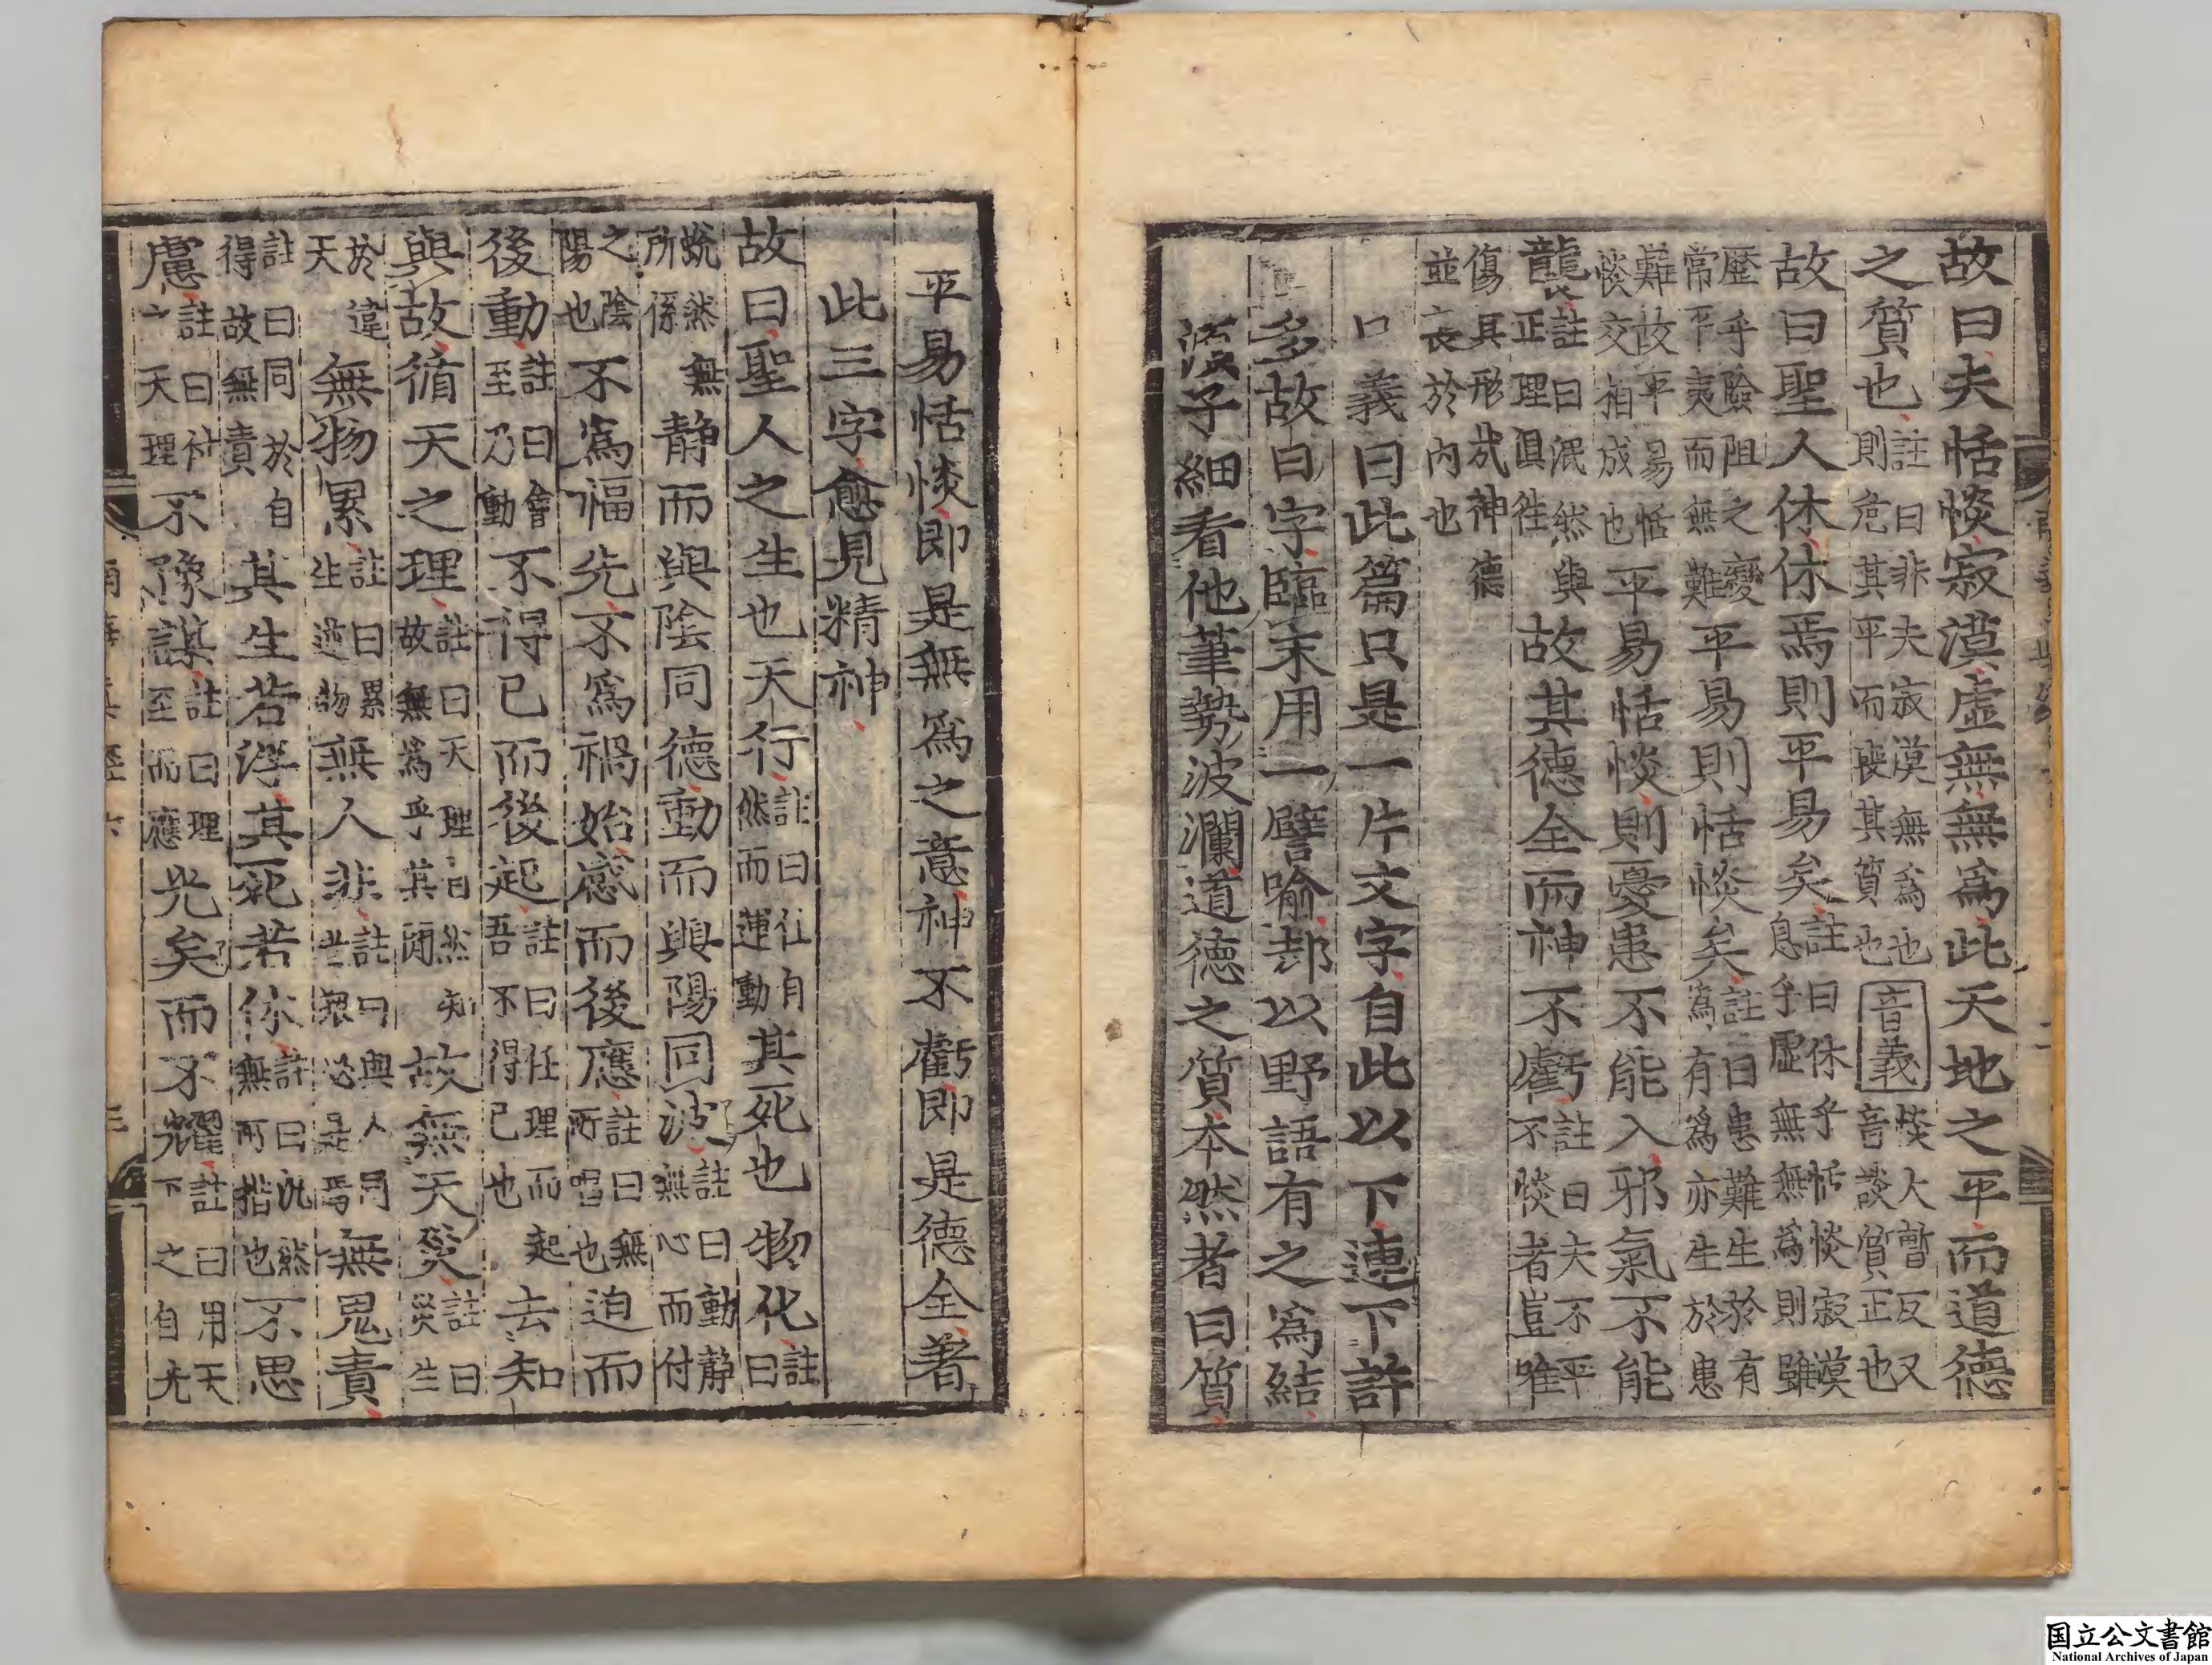 故曰夫恬惔寂漠虛無無爲此天地之平而道德
之質也註曰非夫寂漠無爲也則危其平而喪其質也音義惔大暫反又音談質正也
故曰聖人休休焉則平易矣註曰休乎恬惔寂漠息乎虛無無爲則雖
歷乎險阻之變常平夷而無難平易則恬惔矣註曰患難生於有爲有爲亦生於患
難故平易恬惔交相成也平易恬惔則憂患不能入邪氣不能
襲註曰泯然與正理俱往故其德全而神不虧註曰夫不平不惔者豈唯
傷其形㢤神德並喪於內也
口義曰此篇只是一片文字自此以下連下許
多故曰字臨末用一譬喻却以野語有之爲結
子細看他筆勢波瀾道德之質本然者曰質
平易恬惔即是無爲之意神不虧即是德全著
此三字愈見精神
故曰聖人之生也天行註曰任自然而運動其死也物化註曰
蛻然無所係靜而與陰同德動而與陽同波註曰動靜無心而付
之陰陽也不爲福先不爲禍始感而後應註曰無所唱也迫而
後動註曰會至乃動不得已而後起註曰任理而起吾不得已也去知
與故循天之理註曰天理自然知故無爲乎其間故無天災註曰災生
於違天無物累註曰累生逆物無人非註曰與人同者衆必是焉無鬼責
註曰同於自得故無責其生若浮其死若休註曰汎然無所惜也不思
慮註曰付之天理不豫謀註曰理至而應光矣而不耀註曰用天下之自光